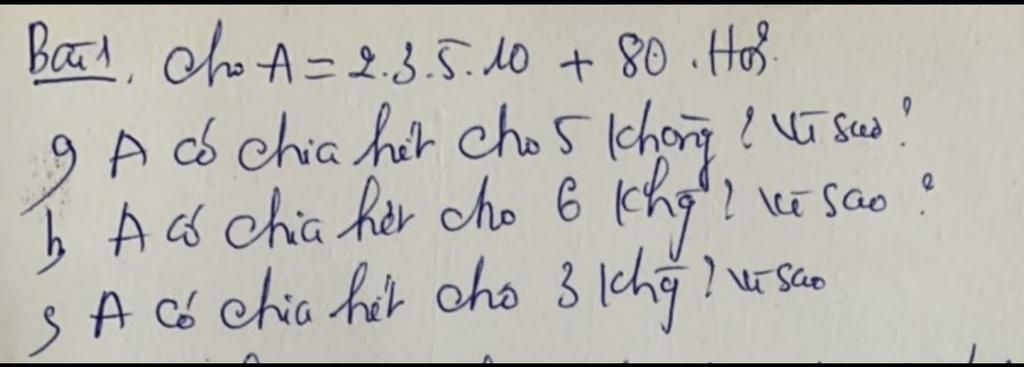 Bài 1. Cho A = 2.3.5.10 + 80. Hỏi
a, A có chia hết cho 5 không? Vì sao?
b, A có chia hết cho 6 khg? Vì sao?
c, A có chia hết cho 3 khg? Vì sao